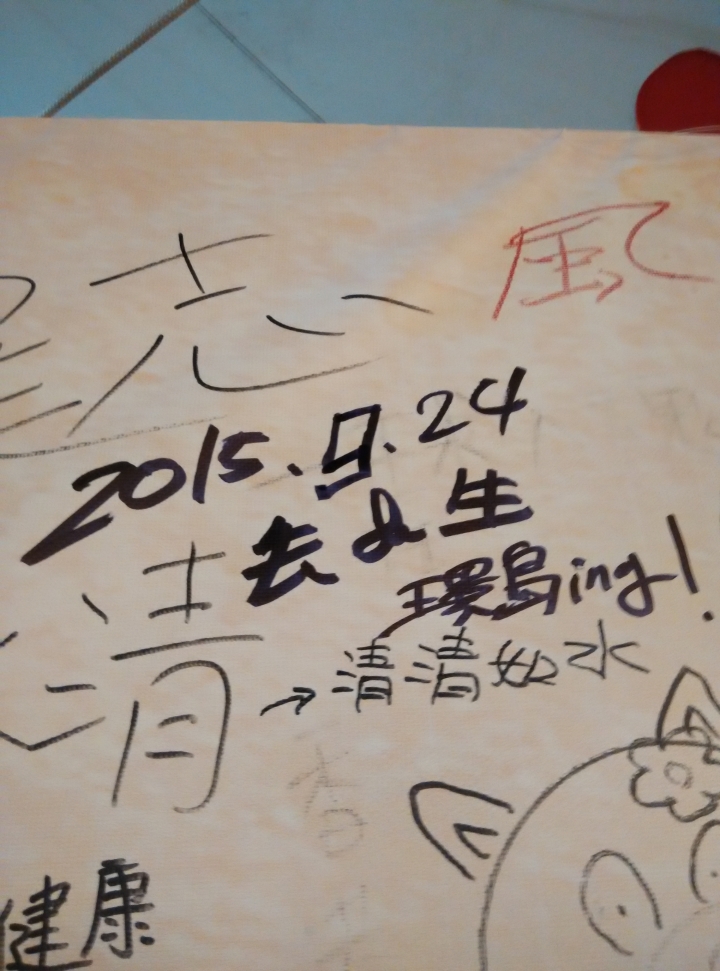 風
志
2015.9.24
去&生
環島ing!
清
→清清如水
健康